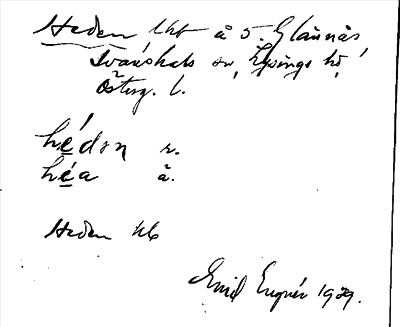 Heden lht å S. Glännäs
Svanshals sn, Lysings hd,
Österg. l.
hédən r.
héa ä.
Heden lht
Emil Enqvér 1929.